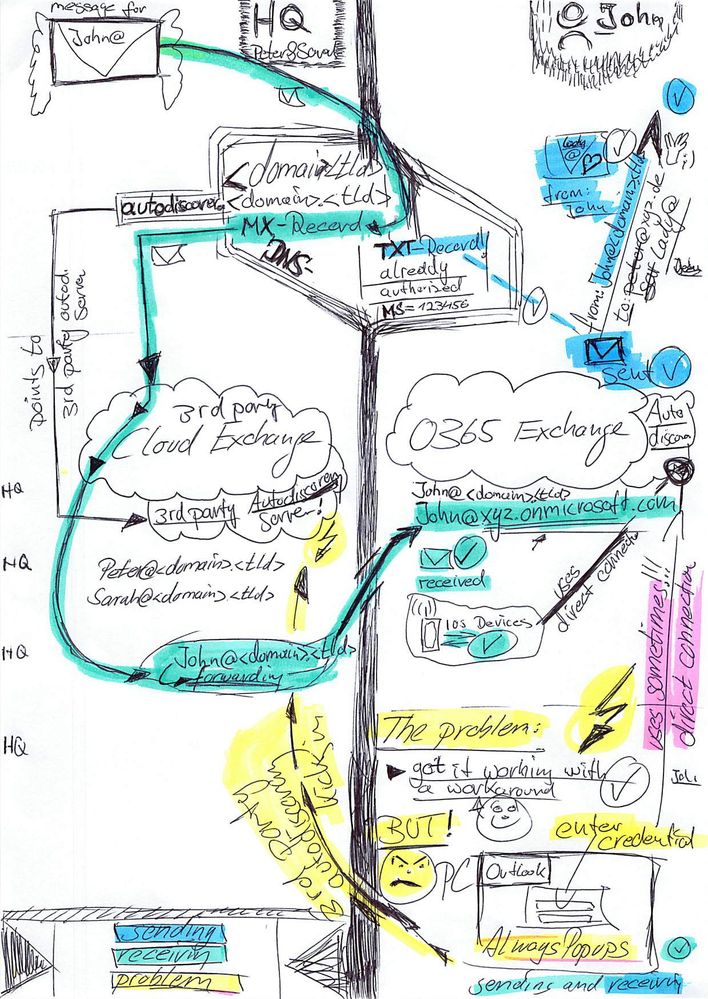 message for
John@
HQ
Peter&Sarah
John
<domain>.<tld>
<domain>.<tld>
autodiscover
MX-Record
DNS
TXT-Record!
alreddy
authorized
MS=123456
lady
@
from:
John
from: John@<domain>.<tld>
to: peter@xyz.de
Lady@
sent
points to
3rd party autod.
Server
3rd party
Cloud Exchange
O365 Exchange
Auto
discover
3rd party Autodiscover
Server!
HQ
HQ
HQ
HQ
Peter@<domain>.<tld>
Sarah@<domain>.<tld>
John@<domain>.<tld>
forwarding
John@<domain>.<tld>
John@xyz.onmicrosoft.com
received
IOS Devices
uses
direct connection
uses sometimes!!!
direct connection
3rd party
autodiscover
kicks in
The problem:
got it working with
a workaround
BUT!
enter
credential
PC
Outlook
Always Popups
sending and receiving
sending
receiving
problem